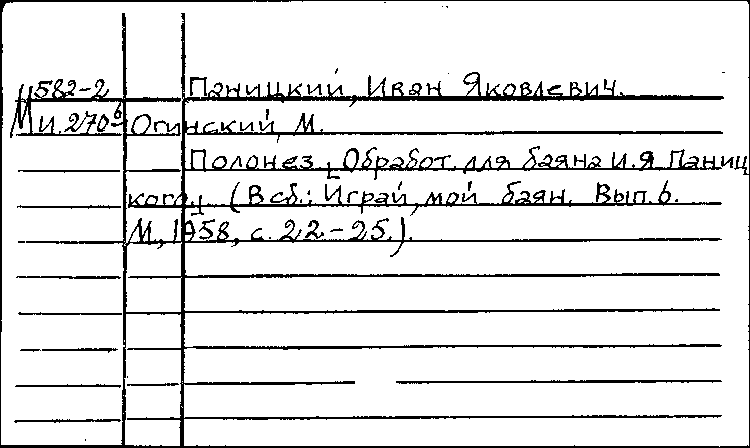 Ц582-2 Паницкий, Иван Яковлевич.
М И.270б Огинский, М.
Полонез. [Обработ. для баяна И.Я Паниц
кого]. (В сб.: Играй, мой баян. Вып. 6.
М., 1958, с. 22-25.).